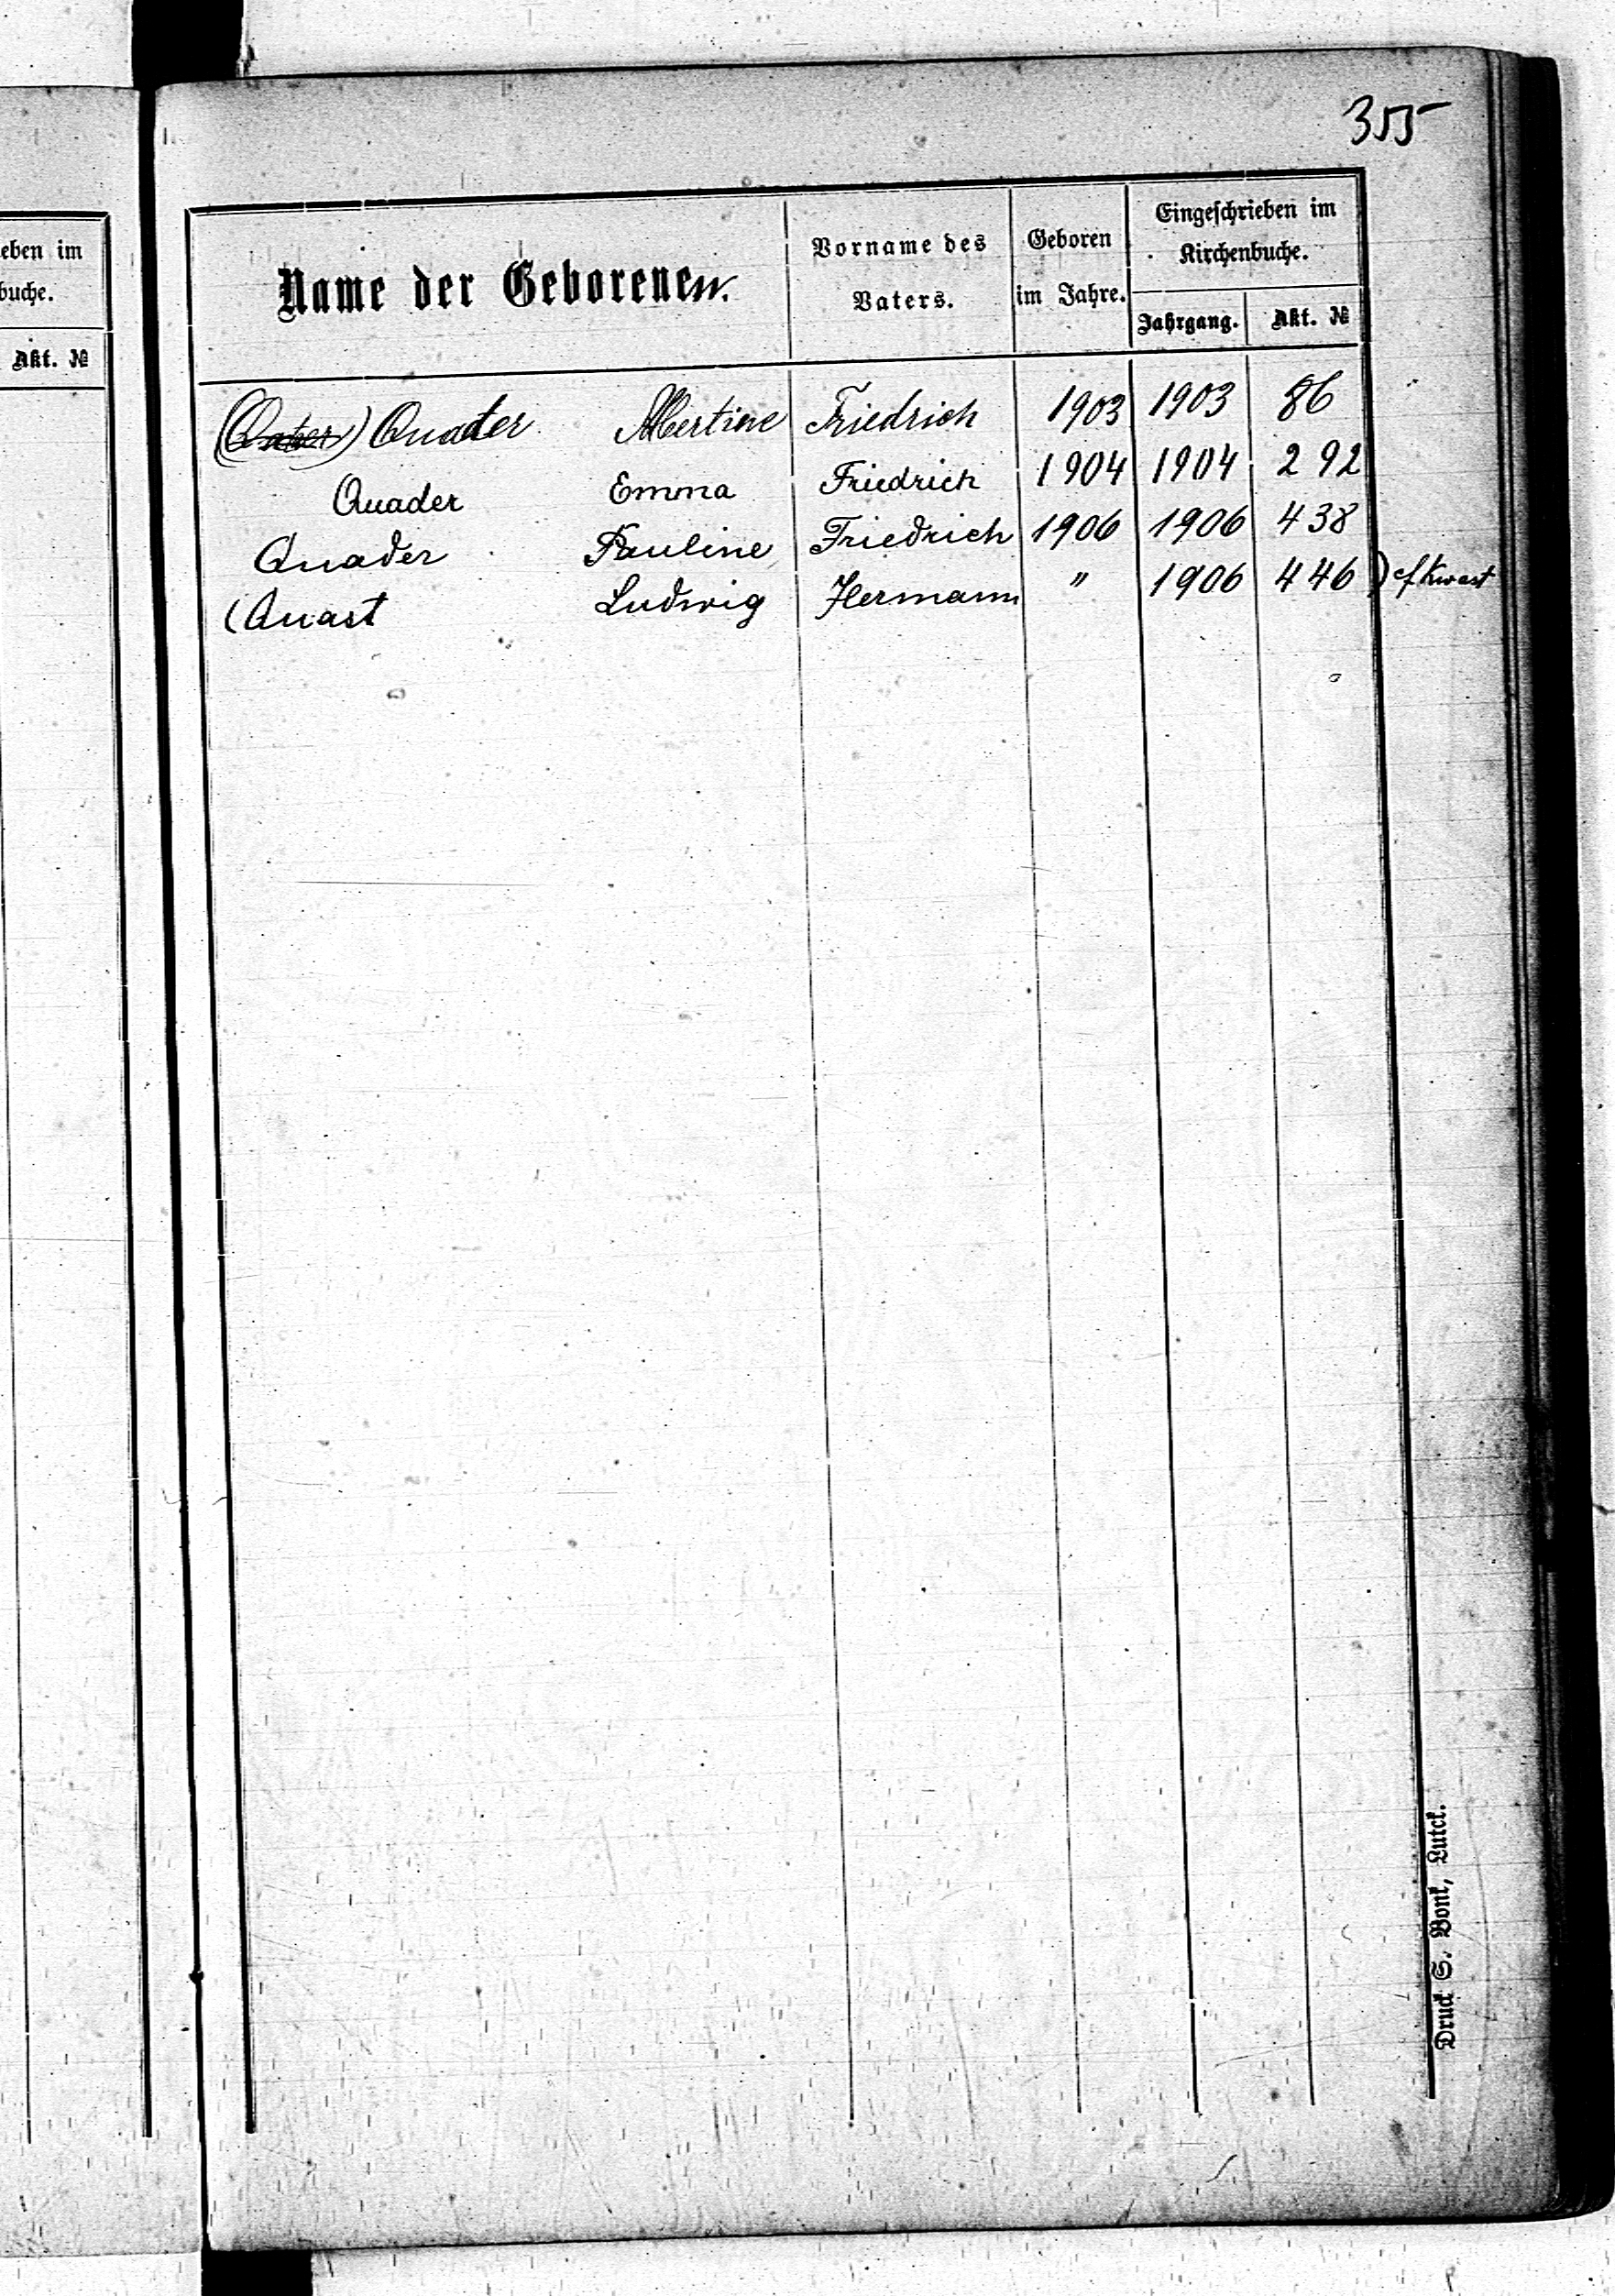 355
eben im
buche.
Akt. №
Name der Geborenen.
Vorname des Vaters.
Geboren im Jahre.
Eingeschrieben im Kirchenbuche.
Jahrgang. Akt. №
Quader Albertine Friedrich 1903 1903 86
Quader Emma Friedrich 1904 1904 292
Quader Pauline Friedrich 1906 1906 438
(Quast Ludwig Hermann " 1906 446) cf Kwast
Druck S. Bonk, Lutck.